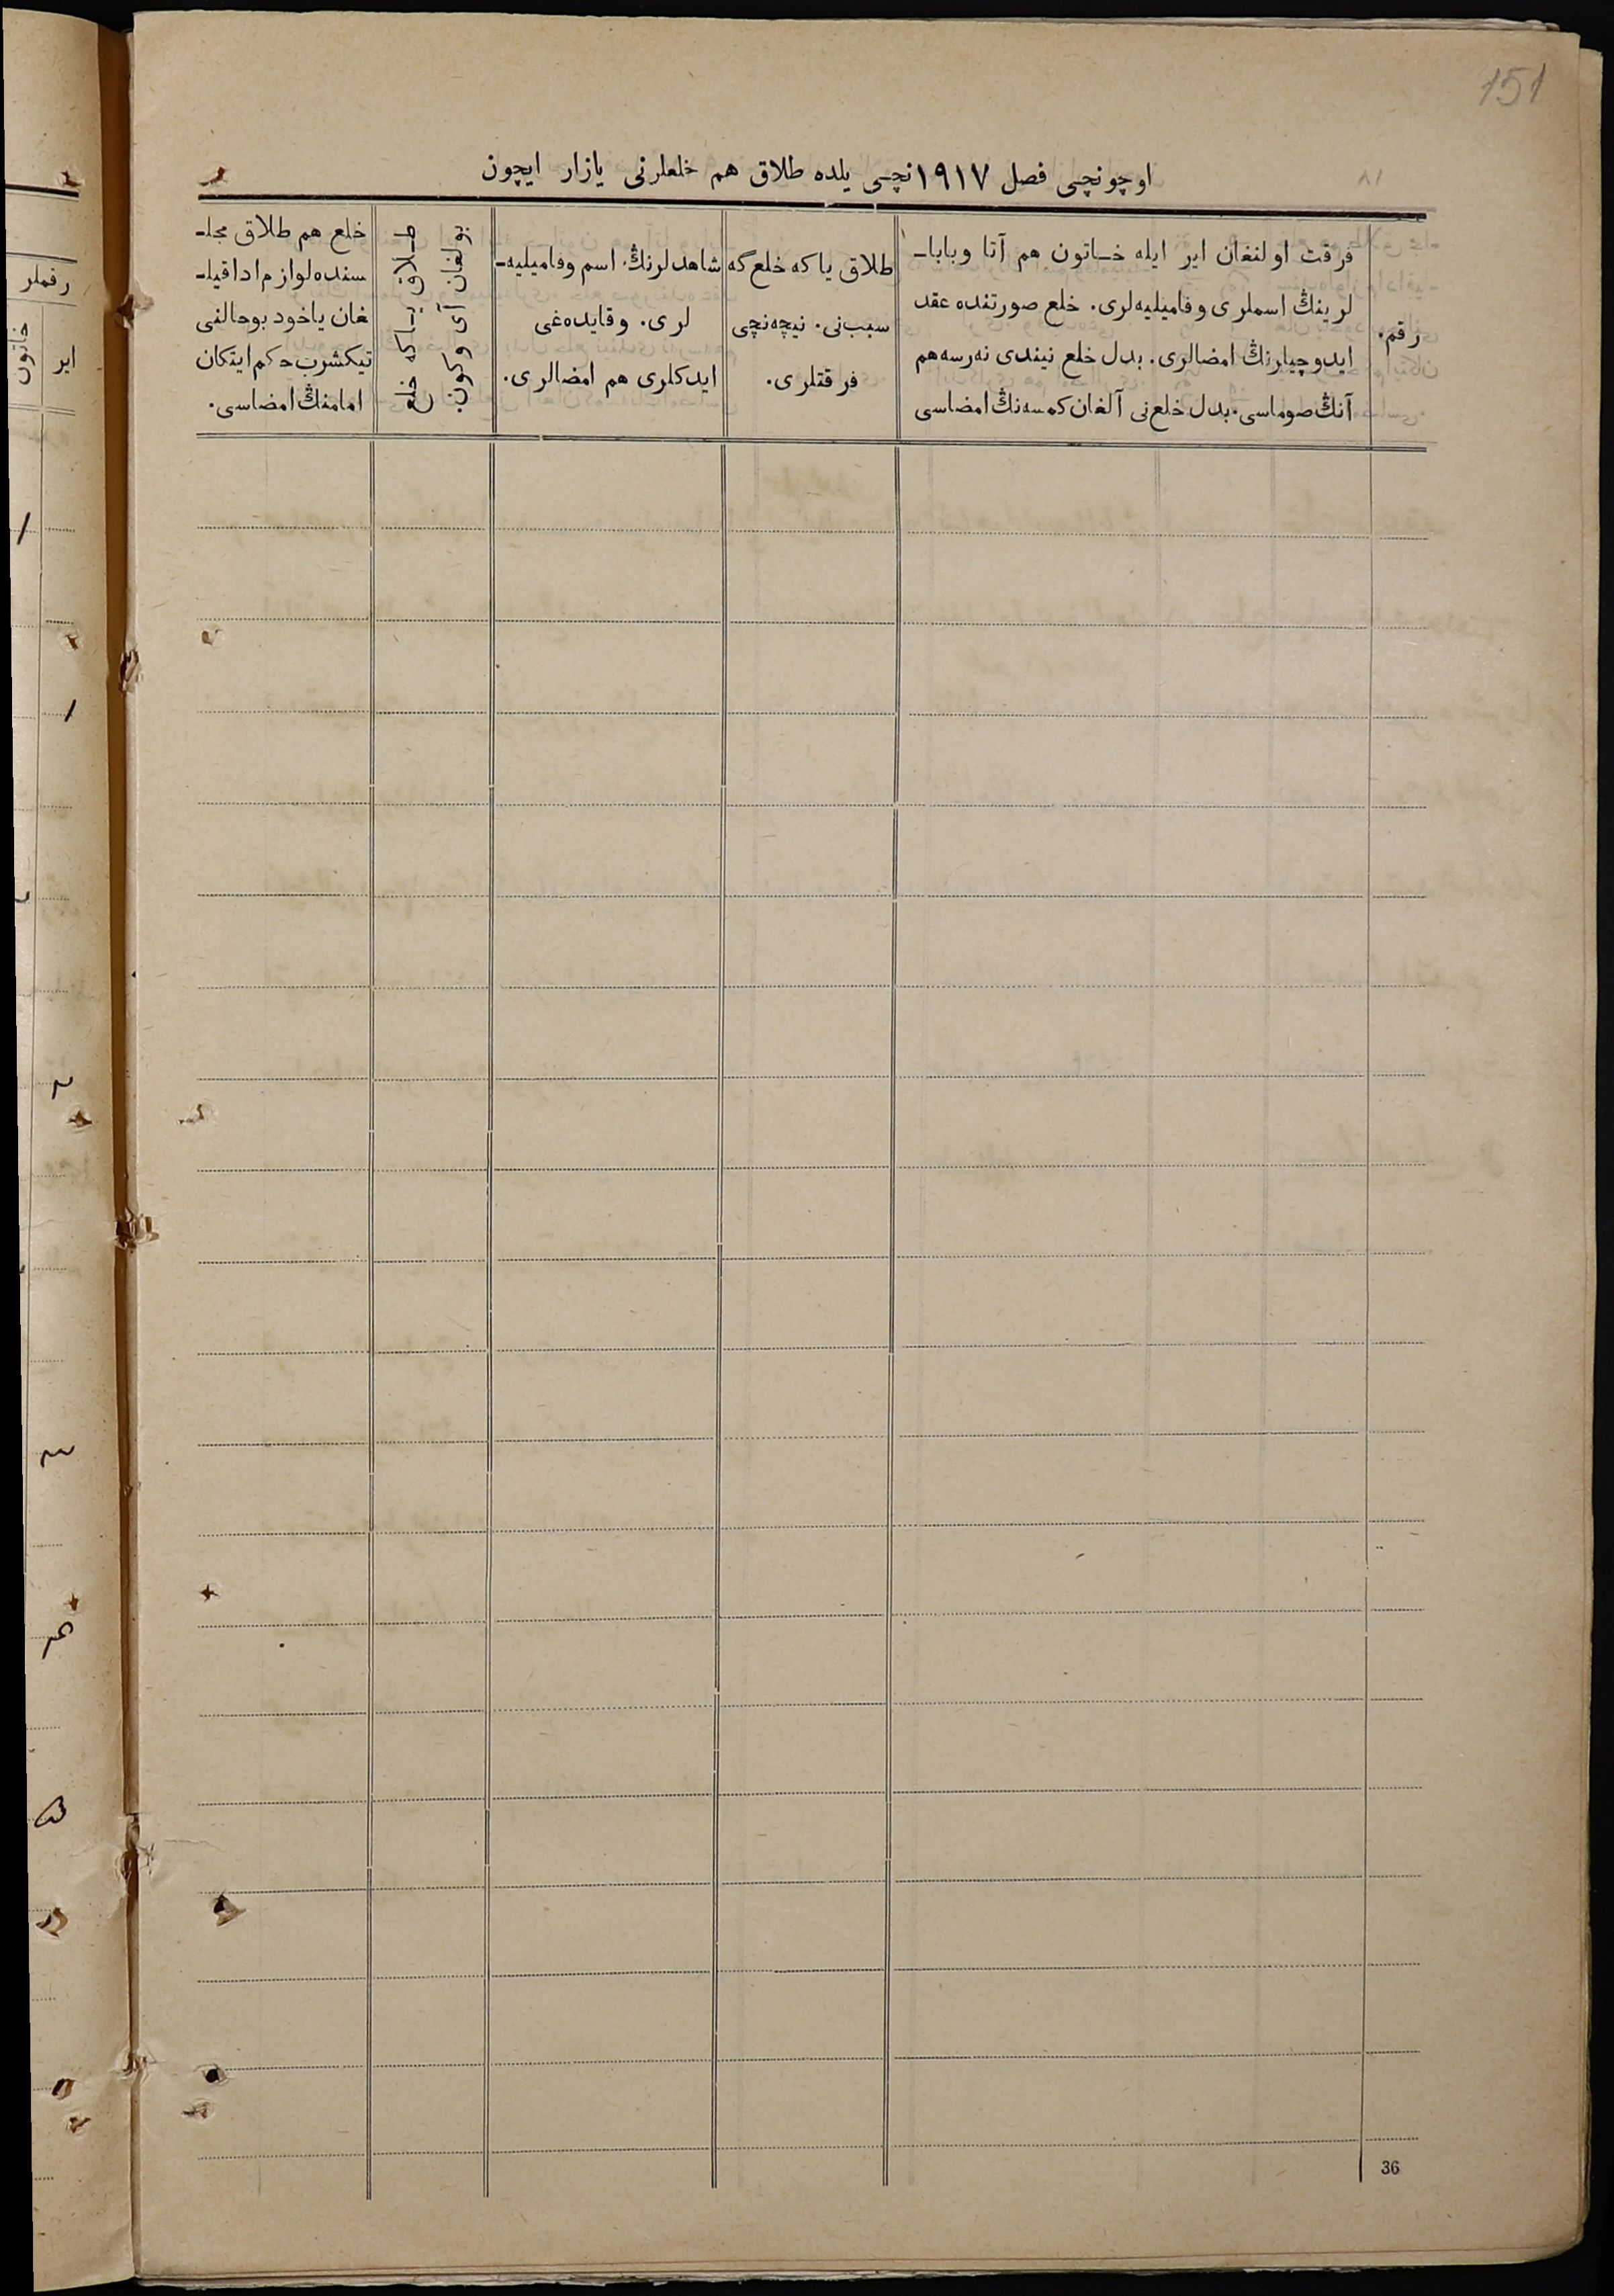 151
اوچونچی فصل ۱۹۱۷نچی یلده طلاق هم خلعلرنی یازار ایچون
رقم.
فرقت اولنغان ایر ایله خـاتون هم آتا وبابا-
لرینڭ اسملری وفامیلیه‌لری. خلع صورتنده عقد
ایدوچیلرنڭ امضالری. بدل خلع نیندی نه‌رسه‌هم
آنڭ صوماسی. بدل خلع‌نی آلغان کمسه‌نڭ امضاسی
طلاق یاکه خلع‌گه
سبب‌نی. نیچه‌نچی
فرقتلری.
شاهدلرنڭ اسم وفامیلیه-
لری. وقایده‌غی
ایدکلری هم امضالری.
طـلاق یـاکه خلع
بولغان آی وکون.
خلع هم طلاق مجلـ-
سنده لوازم ادا قیلـ-
غان یاخود بوحالنی
تیکشرب حکم ایتکان
امامنڭ امضاسی.
رقملر
ایر
خاتون
36